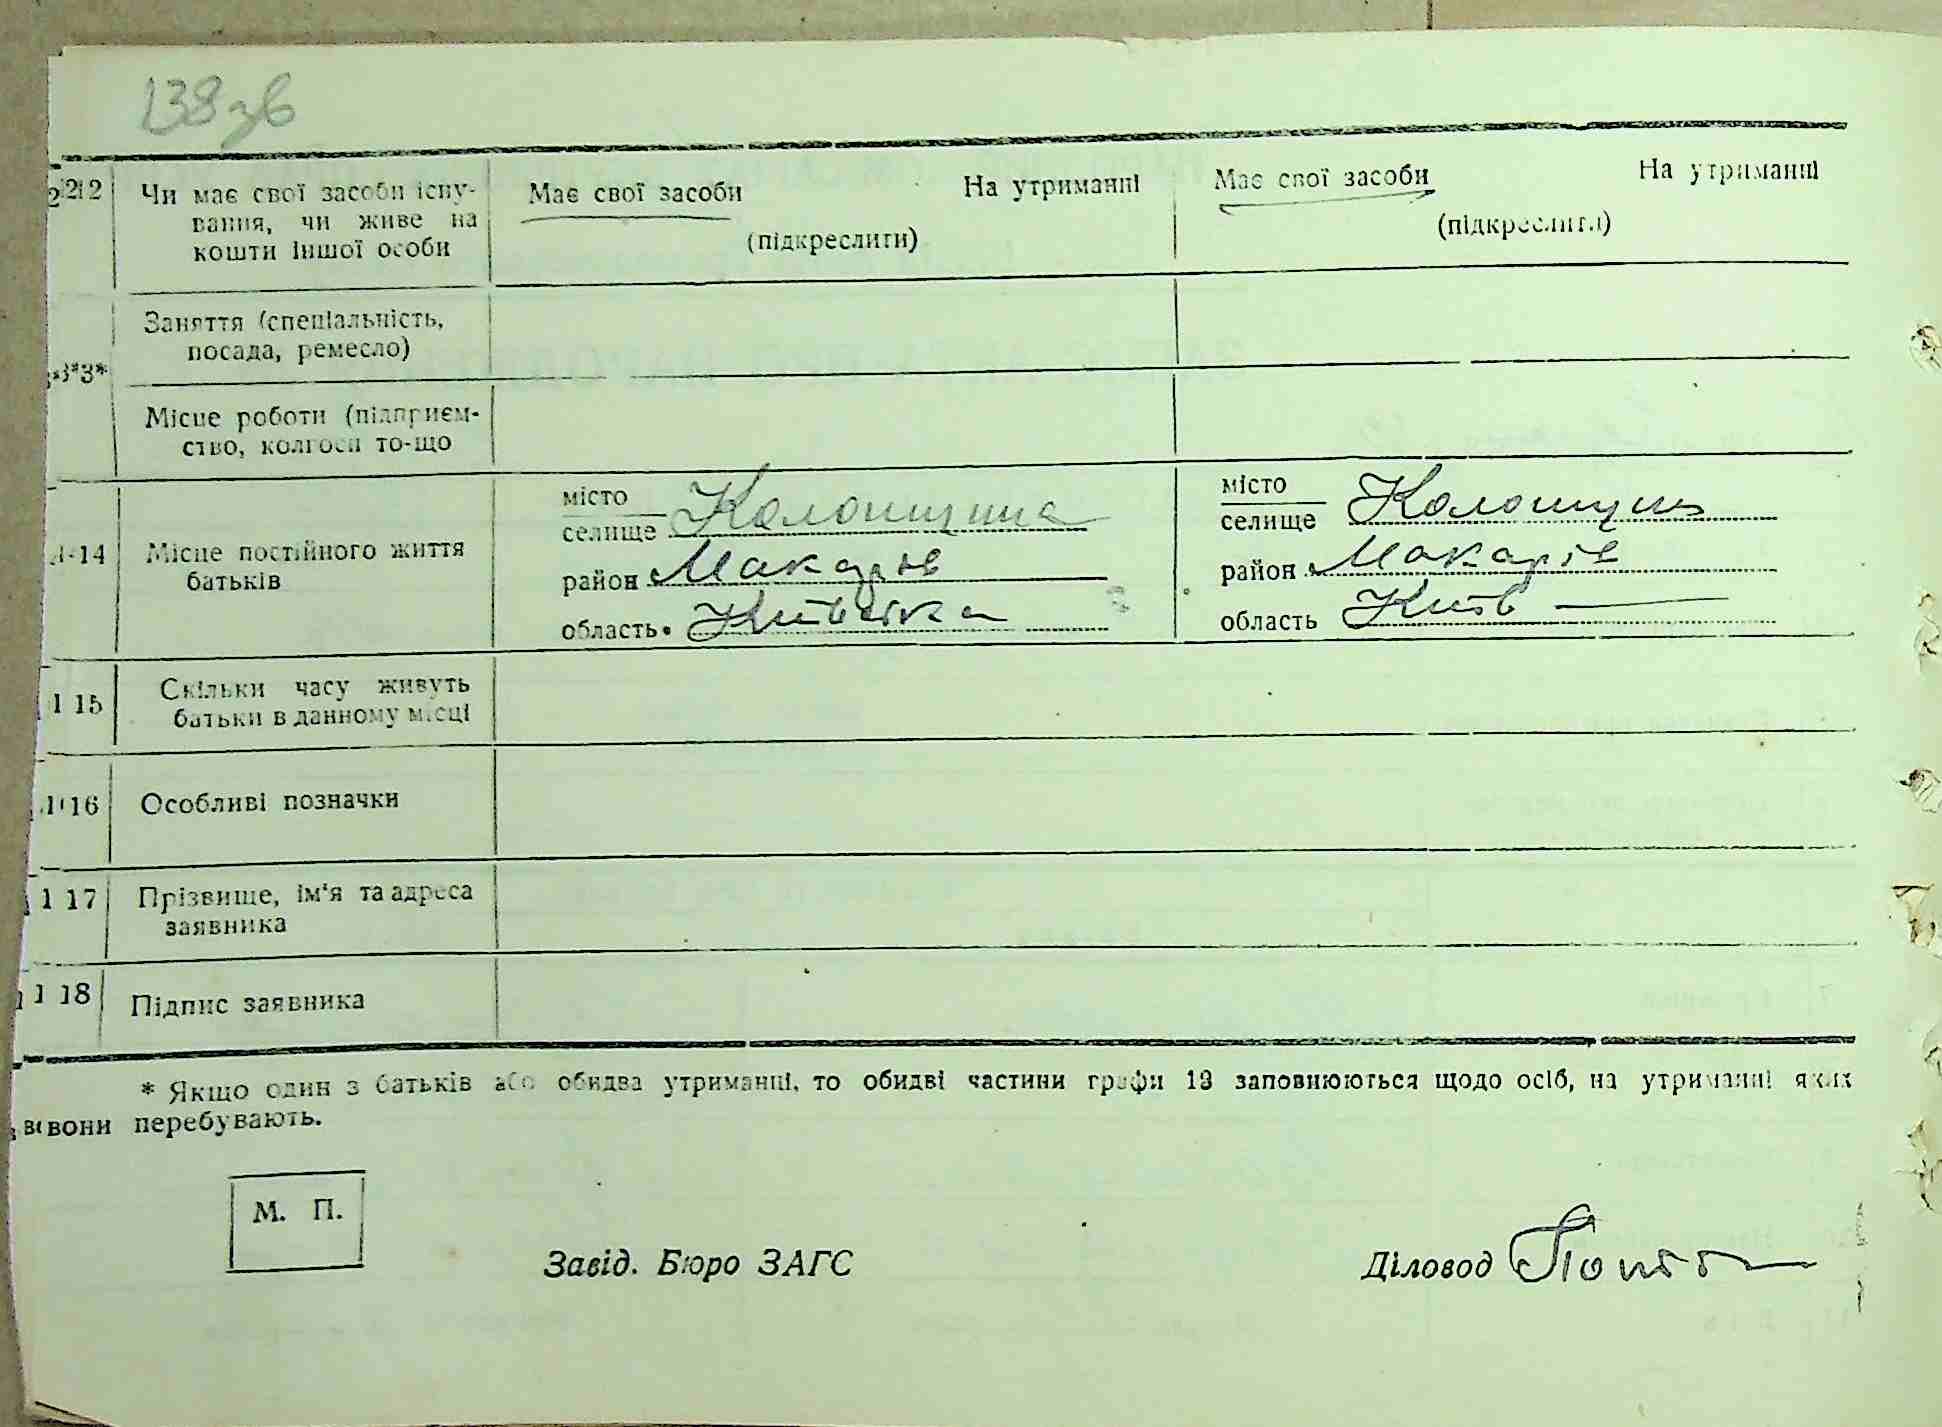 138 зв
12 Чи має свої засоби існу-
вання, чи живе на
кошти іншої особи
Має свої засоби На утриманні
(підкреслити)
Має свої засоби На утриманні
(підкреслити)
13* Заняття (спеціальність,
посада, ремесло)
Місце роботи (підприєм-
ство, колгосп то-що
14 Місце постійного життя
батьків
місто
селище Колонщина
район Макарів
область Київська
місто
селище Колонщин
район Макарів
область Київ
15 Скільки часу живуть
батьки в данному місці
16 Особливі позначки
17 Прізвище, ім'я та адреса
заявника
18 Підпис заявника
* Якщо один з батьків або обидва утриманці, то обидві частини графи 13 заповнюються щодо осіб, на утриманні яких
вони перебувають.
М. П.
Завід. Бюро ЗАГС
Діловод